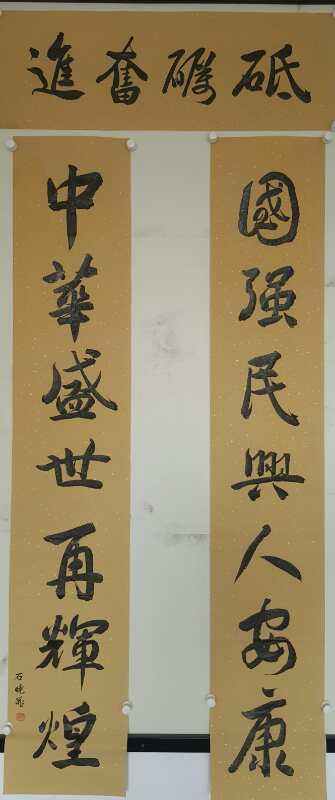 砥礪奮進
國强民興人安康
中華盛世再輝煌